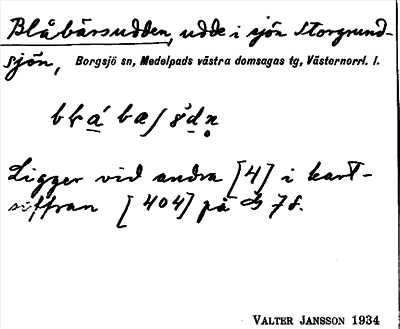 Blåbärsudden, udde i sjön Storgrund-
sjön, Borgsjö sn, Medelpads västra domsagas tg, Västernorrl. l.
Ligger vid andra [4] i kart-
siffran [404] på 78.
VALTER JANSSON 1934